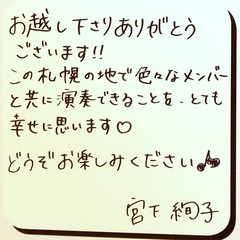 お越し下さりありがとう
ございます!!
この札幌の地で色々なメンバー
と共に演奏できることを、とても
幸せに思います♡
どうぞお楽しみください♪
宮下 絢子